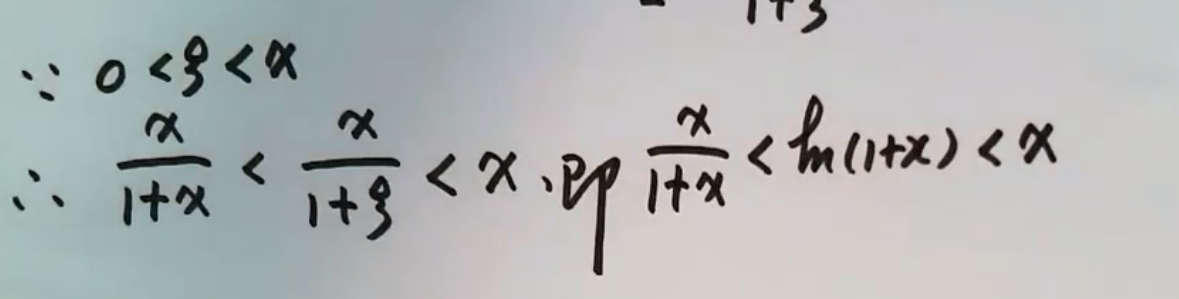 1+ξ
∵ 0<ξ<x
∴ x/(1+x) < x/(1+ξ) < x、即 x/(1+x) < ln(1+x) < x